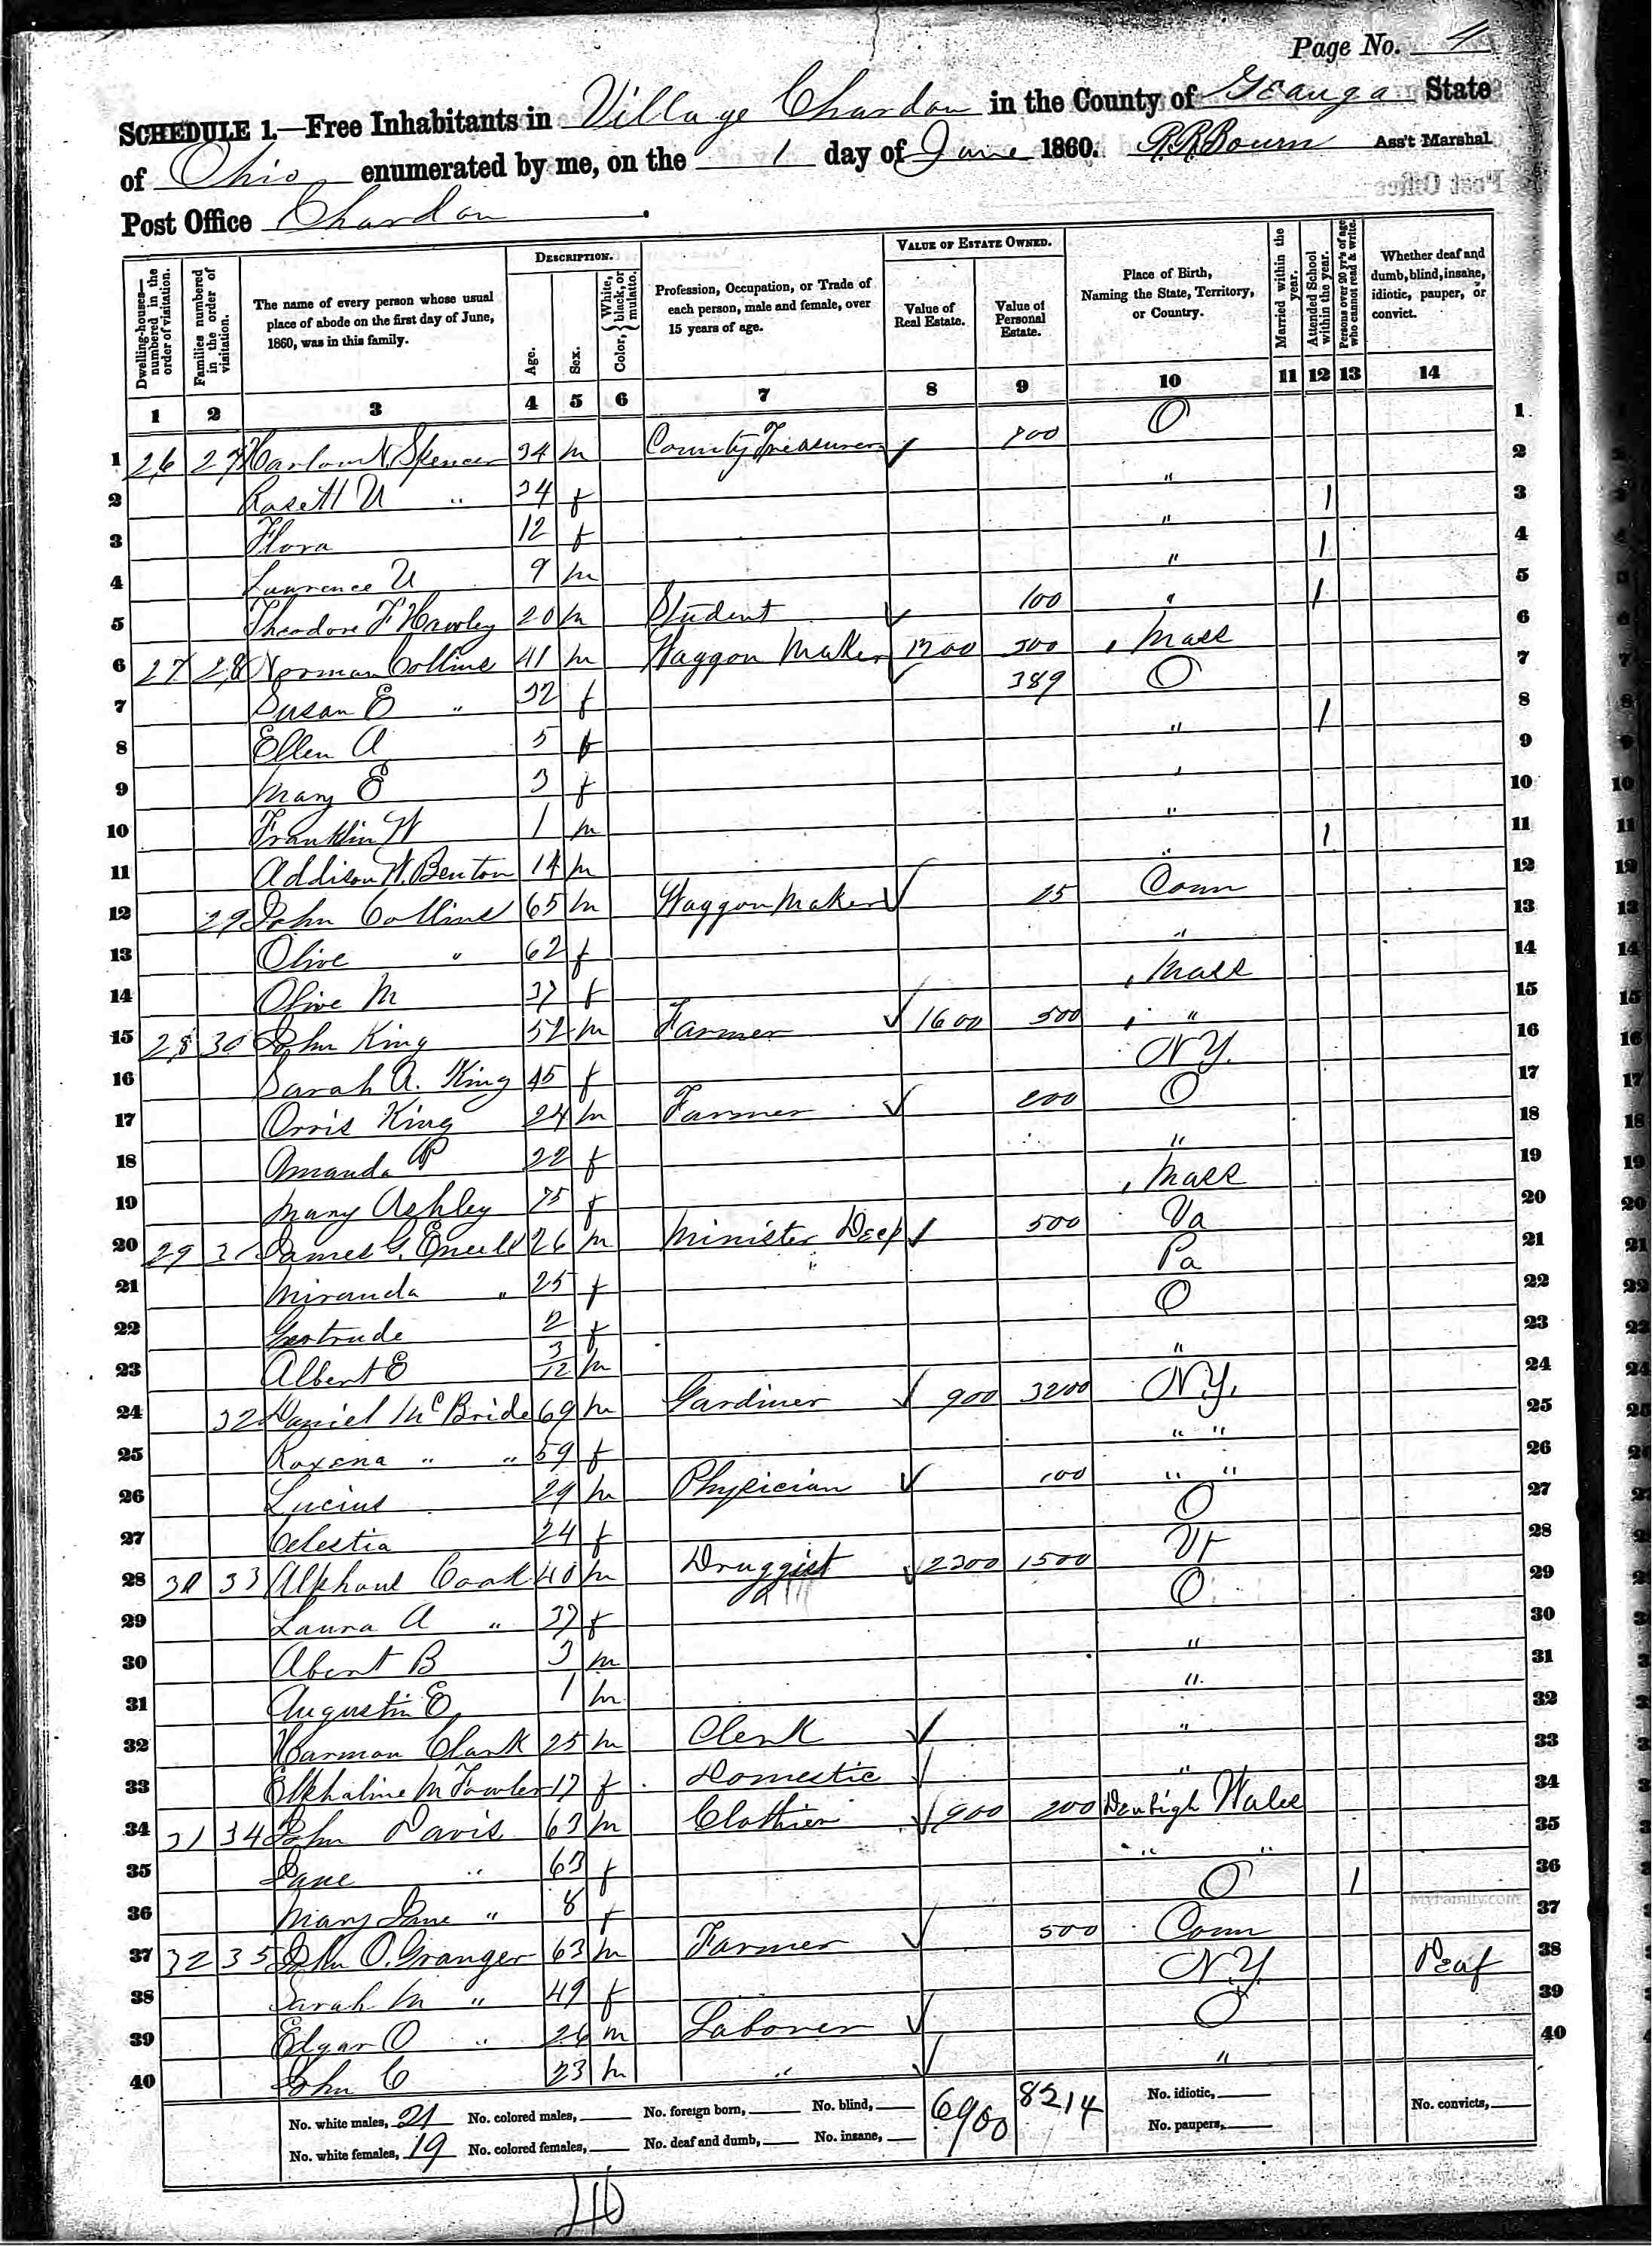 Page No. 4
SCHEDULE 1.—Free Inhabitants in Village Chardon in the County of Geauga State
of Ohio enumerated by me, on the 1 day of June 1860. R.R. Bourn Ass't Marshal
Post Office Chardon.
Dwelling-houses—numbered in the order of visitation.
Families numbered in the order of visitation.
The name of every person whose usual place of abode on the first day of June, 1860, was in this family.
DESCRIPTION.
Age.
Sex.
Color, { White, black, or mulatto.
Profession, Occupation, or Trade of each person, male and female, over 15 years of age.
VALUE OF ESTATE OWNED.
Value of Real Estate.
Value of Personal Estate.
Place of Birth, Naming the State, Territory, or Country.
Married within the year.
Attended School within the year.
Persons over 20 y'rs of age who cannot read & write.
Whether deaf and dumb, blind, insane, idiotic, pauper, or convict.
1 2 3 4 5 6 7 8 9 10 11 12 13 14
1 26 27 Harlow N. Spencer 34 m County Treasurer 800 O 1
2 Rosett U " 34 f " 2
3 Flora 12 f " 1 3
4 Lawrence U 9 m " 1 4
5 Theodore F Hawley 20 m Student 100 " 1 5
6 27 28 Norman Collins 41 m Waggon Maker 1200 500 Mass 6
7 Susan E " 32 f 389 O 7
8 Ellen A 5 f " 1 8
9 Mary E 3 f " 9
10 Franklin W 1 m " 10
11 Addison W. Benton 14 m " 1 11
12 29 John Collins 65 m Waggon Maker 25 Conn 12
13 Olive " 62 f " 13
14 Olive M 37 f Mass 14
15 28 30 John King 52 m Farmer 1600 500 " 15
16 Sarah A. King 45 f N.Y. 16
17 Orris King 24 m Farmer 200 O 17
18 Amanda P 22 f " 18
19 Mary Ashley 75 f Mass 19
20 29 31 James G. 26 m Minister 500 Va 20
21 Miranda " 25 f " Pa 21
22 Gertrude 2 f O 22
23 Albert E 3/12 m " 23
24 32 Daniel McBride 69 m Gardiner 900 3200 N.Y. 24
25 Roxena " " 59 f " " 25
26 Lucius 29 m Physician 100 " " 26
27 Celestia 24 f O 27
28 30 33 Cook 40 m Druggist 2300 1500 Vt 28
29 Laura A " 37 f O 29
30 Abert B 3 m " 30
31 Augustin E. 1 m " 31
32 Harmon Clark 25 m Clerk " 32
33 M Fowler 17 f Domestic " 33
34 31 34 John Davis 63 m Clothier 900 200 Denbigh Wales 34
35 Jane " 63 f " " 35
36 Mary Jane " 8 f O 1 36
37 32 35 John O. Granger 63 m Farmer 500 Conn 37
38 Sarah M " 49 f N.Y. Deaf 38
39 Edgar O " 26 m Laborer O 39
40 John C 23 m " " 40
No. white males, 21 No. colored males, No. foreign born, No. blind, 6900 8214 No. idiotic, No. convicts,
No. white females, 19 No. colored females, No. deaf and dumb, No. insane, No. paupers,
40
MyFamily.com